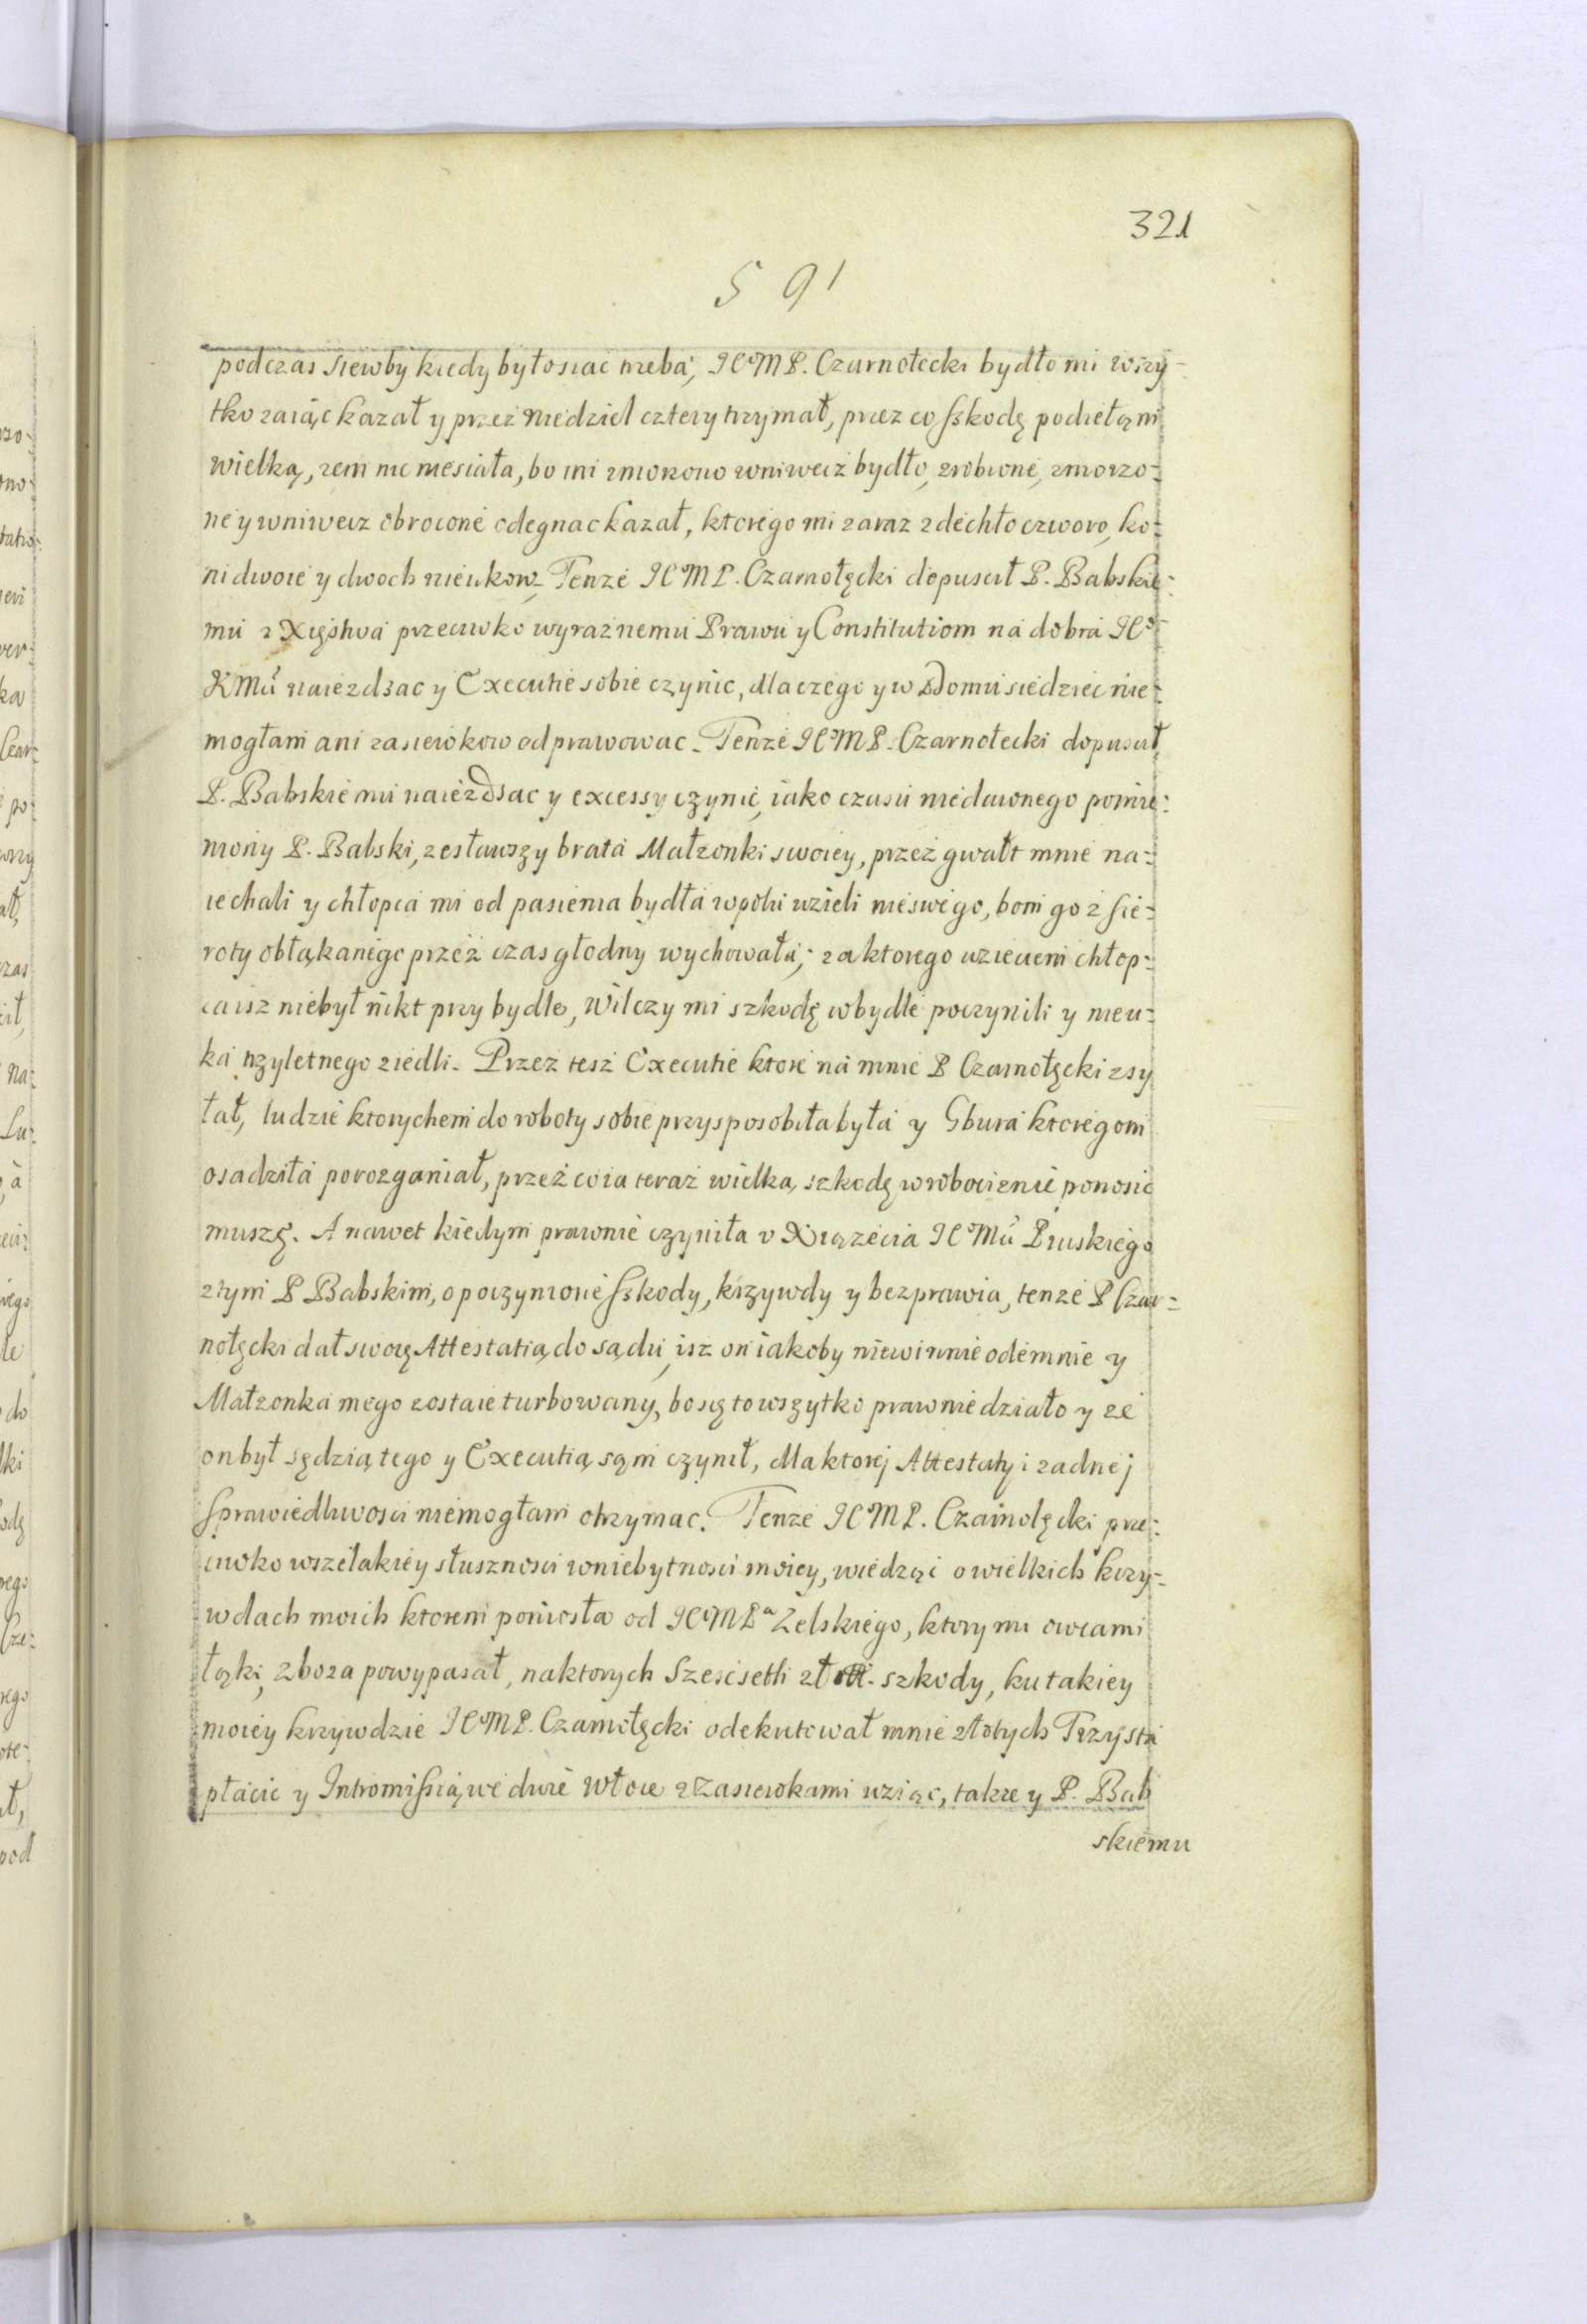 321
591
podczas siewby kiedy było siac trzeba, JEᵒMP. Czarnołecki bydło mi wszy-
tko zaiąc kazał y przez Niedziel cztery trzymał, przez co szkodę podięłąm
wielką, zem nic niesiała, bo mi zmorzono wniwecz bydło, zrobione, zmorzo-
ne y wniwecz obrocone odegnac kazał, ktorego mi zaraz zdechło czworo, ko-
ni dwoie y dwoch nieukow. Tenze JEᵒMP. Czarnołęcki dopuscił P. Babskie-
mu z Xięstwa przeciwko wyraznemu Prawu y Constitutiom na dobra JEᵒ
KMci naiezdzac y Executie sobie czynic, dla czego y w Domu siedziec nie-
mogłam ani zasiewkow odprawowac. Tenze JEᵒMP. Czarnołecki dopuscił
P. Babskiemu naiezdsac y excessy czynic, iako czasu niedawnego pomie-
niony P. Babski, zesławszy brata Małzonki swoiey, przez gwałt mnie na-
iechali y chłopca mi od pasienia bydła wpolu wzieli nieswego, bom go z sie-
roty obłąkanego przez czas głodny wychowała; za ktorego wzieciem chłop-
ca isz niebył nikt przy bydle, Wilczy mi szkodę wbydle poczynili y nieu-
ka trzyletnego ziedli. Przez tesz Executie ktore na mnie P Czarnołęcki zsy
łał, ludzie ktorychem do roboty sobie przysposobiła była y Gbura ktoregom
osadziła porozganiał, przez co ia teraz wielką szkodę wrobociznie ponosic
muszę. A nawet kiedym prawnie czyniła v Xiązecia JEᵒMci Pruskiego
ztym P Babskim, o poczynione szkody, krzywdy y bezprawia, tenze P Czar-
nołęcki dał swoię Attestatią do sądu, isz on iakoby niewinnie odemnie y
Małzonka mego zostaie turbowany, bo się to wszytko prawnie działo y ze
on był sędzią tego y Executią sąm czynił, dla ktorej Attestatyi zadnej
sprawiedliwosci niemogłam otrzymac. Tenze JEᵒMP. Czarnołęcki prze-
ciwko wszelakiey słusznosci wniebytnosci moiey, wiedząc o wielkich krzy-
wdach moich ktorem poniosła od JEᵒMPᵃ Zelskiego, ktory mi owcami
łąki, zboza powypasał, naktorych Szescsetli zł. szkody, ku takiey
moiey krzywdzie JEᵒMP. Czarnołęcki odekutował mnie złotych Trzysta
płacic y Intromissią we dwie Włoce z Zasiewkami wziąc, takze y P. Bab
skiemu